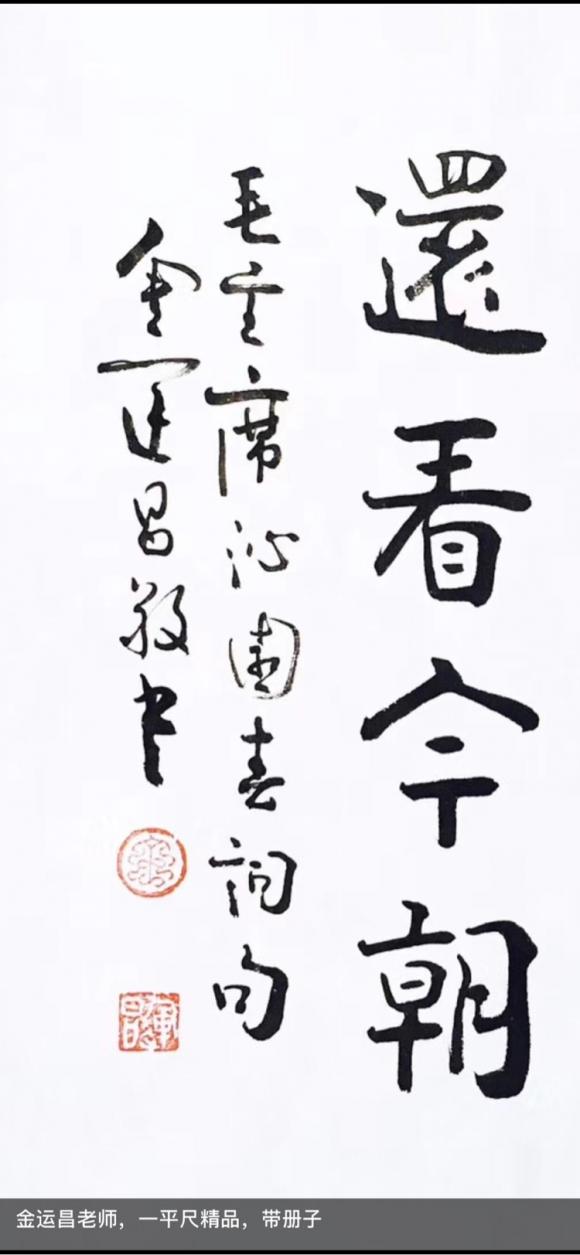 還看今朝
毛主席沁園春詞句
金運昌敬书
金运昌老师，一平尺精品，带册子